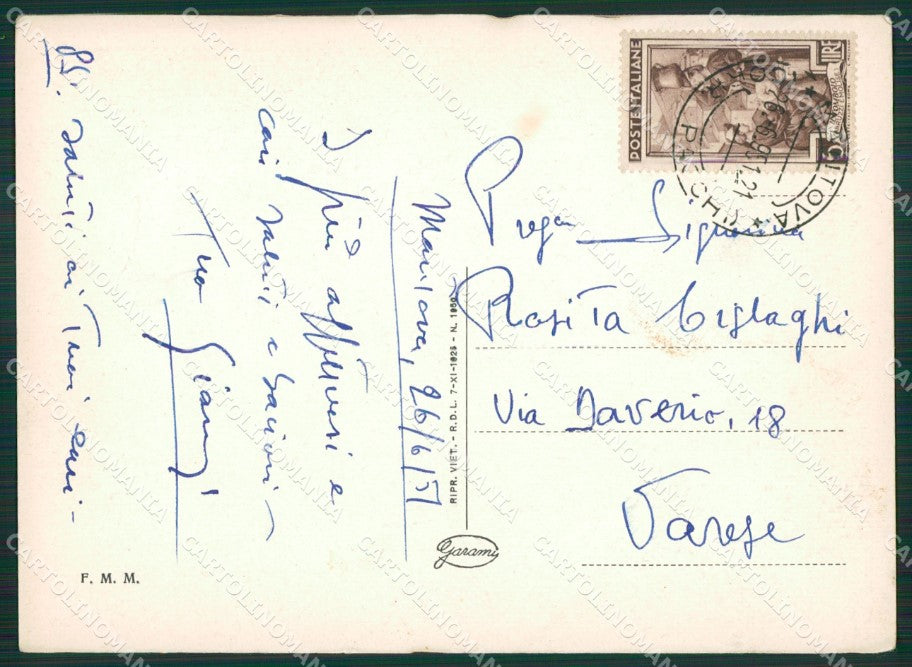 Mantova, 26/6/51
I più affettuosi e
cari saluti e bacioni –
Tuo Gianni
PS. Saluti ai Tuoi cari –
Preg.a Signorina
Rosita Bislaghi
Via Daverio, 18
Varese
POSTE ITALIANE
LIRE
5
MANTOVA
26.6.951.21
RIPR. VIET. - R.D.L. 7-XI-1925 - N. 1950
Garami
F. M. M.
CARTOLINOMANIA